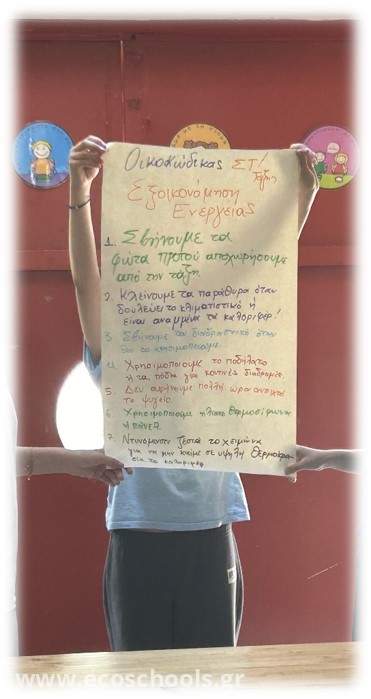 Οικοκώδικας ΣΤ!
Τάξης
Εξοικονόμηση
Ενεργείας
1. Σβήνουμε τα
φώτα προτού αποχωρήσουμε
από την τάξη
2. Κλείνουμε τα παράθυρα όταν
δουλεύει το κλιματιστικό ή
είναι αναμμένα τα καλοριφέρ!
3. Σβήνουμε τον διαδραστικό όταν
δεν το χρησιμοποιούμε
4. Χρησιμοποιούμε το ποδήλατο
ή τα πόδια για κοντινές διαδρομές
5. Δεν αφήνουμε πολλή ώρα ανοιχτό
το ψυγείο
6. Χρησιμοποιούμε ηλιακό θερμοσίφωνα
7. Ντυνόμαστε ζεστά το χειμώνα
για να μην καίμε σε υψηλή θερμοκρα
σία το καλοριφέρ
www.ecoschools.gr